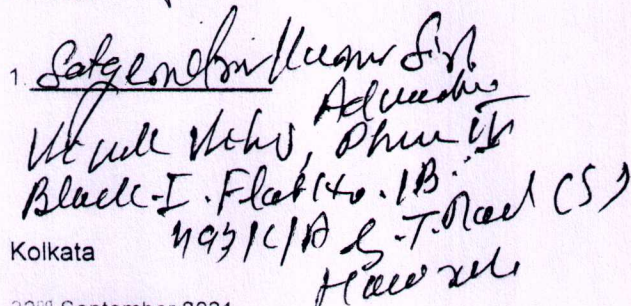 1. Satyendra Kumar Singh
Advocate
Vivek Vihar, Phase IV
Block-I. Flat No. 1B.
493/C/A G.T. Road (S)
Kolkata
Howrah
September 2021